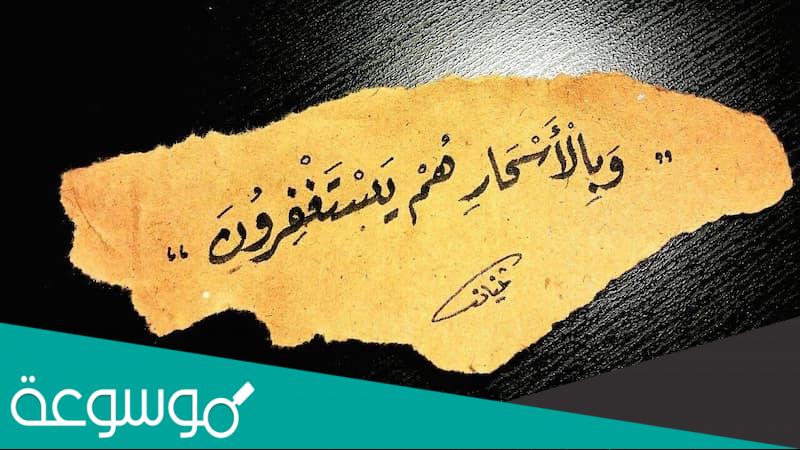 ” وَبِالْأَسْحَارِ هُمْ يَسْتَغْفِرُونَ “
موسوعة